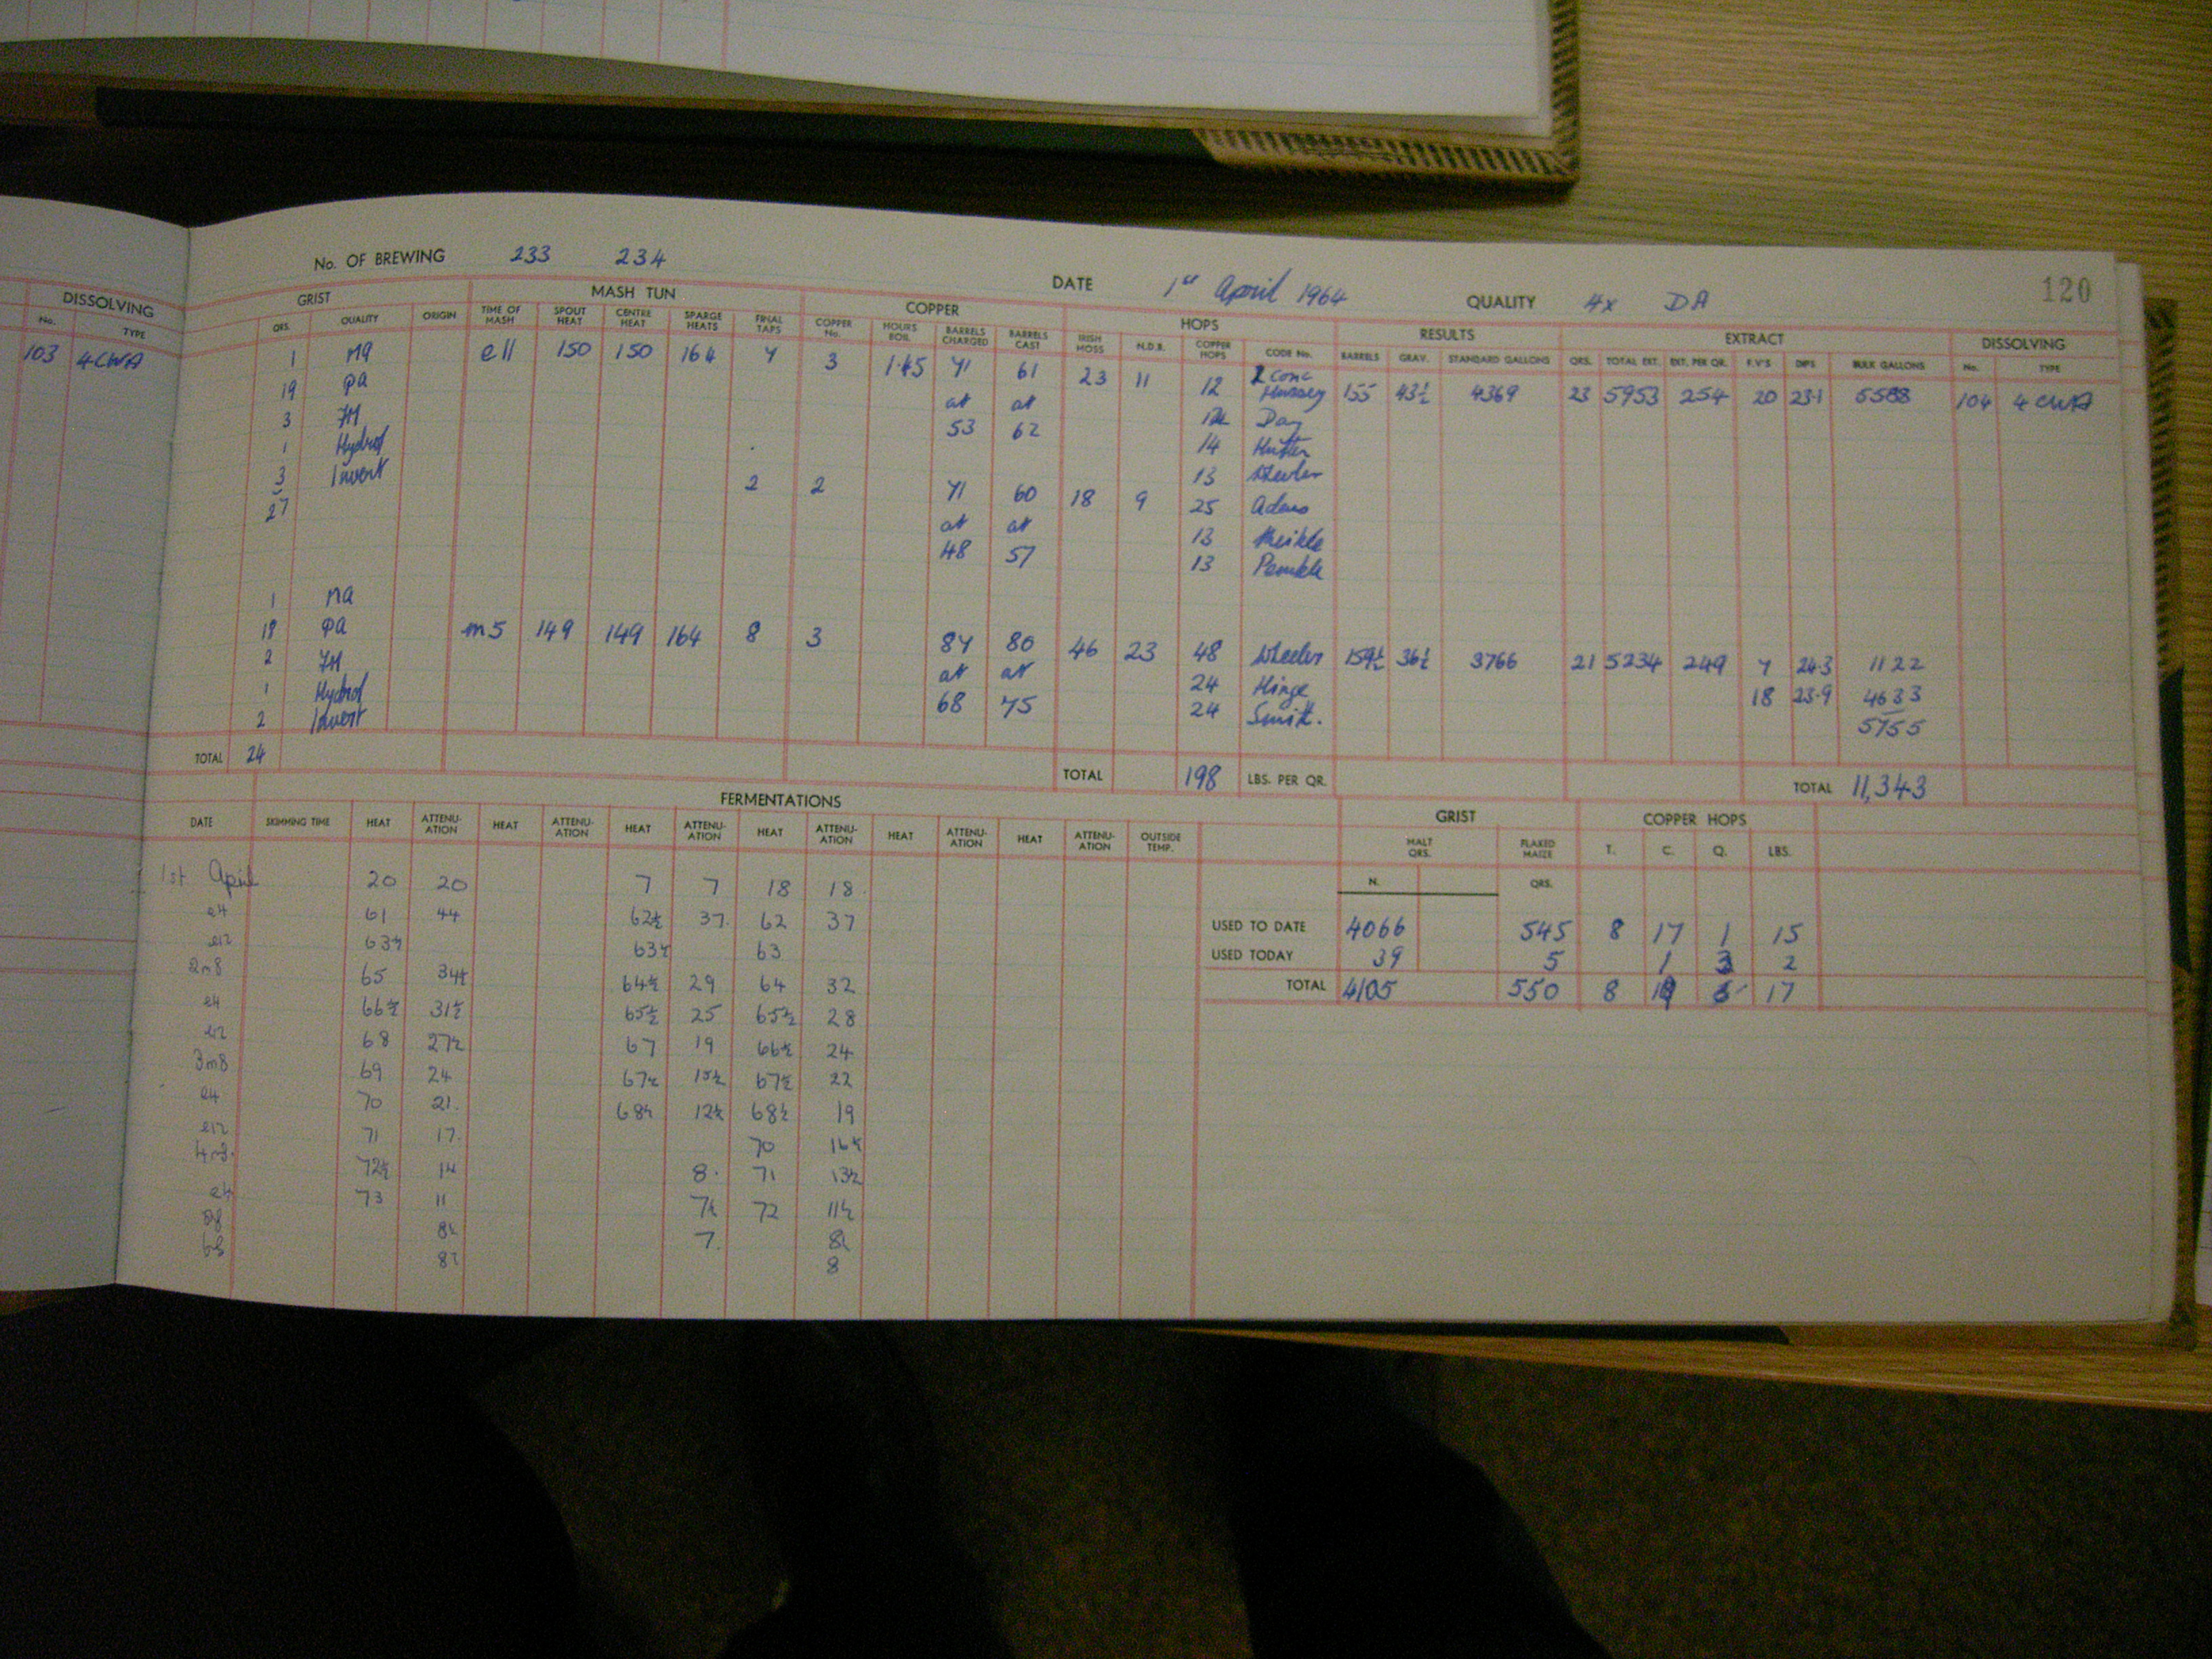 DISSOLVING
No. TYPE
103 4CWA
No. OF BREWING 233 234 DATE 1st April 1964 QUALITY 4x DA 120
GRIST MASH TUN COPPER HOPS RESULTS EXTRACT DISSOLVING
QRS. QUALITY ORIGIN TIME OF MASH SPOUT HEAT CENTRE HEAT SPARGE HEATS FINAL TAPS COPPER No. HOURS BOIL BARRELS CHARGED BARRELS CAST IRISH MOSS N.D.B. COPPER HOPS CODE No. BARRELS GRAV. STANDARD GALLONS QRS. TOTAL EXT. EXT. PER QR. F.V'S DIPS BULK GALLONS No. TYPE
1 MA e11 150 150 164 7 3 1.45 71 61 23 11 12 2 conc Hussey 155 43½ 4369 23 5953 254 20 23.1 5588 104 4 CWA
19 PA at at 12 Day
3 FM 53 62 14 Hutton
1 Hydrol 13 Wheeler
3 Invert 2 2 71 60 18 9 25 Adams
27 at at 13
48 57 13
1 MA
18 PA m5 149 149 164 8 3 87 80 46 23 48 Wheeler 159½ 36½ 3766 21 5234 249 7 24.3 1122
2 FM at at 24 Hinge 18 23.9 4633
1 Hydrol 68 75 24 Smith. 5755
2 Invert
TOTAL 24 TOTAL 198 LBS. PER QR. TOTAL 11,343
FERMENTATIONS
DATE SKIMMING TIME HEAT ATTENU-ATION HEAT ATTENU-ATION HEAT ATTENU-ATION HEAT ATTENU-ATION HEAT ATTENU-ATION HEAT ATTENU-ATION OUTSIDE TEMP.
1st April 20 20 7 7 18 18
e4 61 44 62½ 37 62 37
e12 63½ 63½ 63
2m8 65 34½ 64½ 29 64 32
e4 66½ 31½ 65½ 25 65½ 28
e12 68 27½ 67 19 66½ 24
3m8 69 24 67½ 15½ 67½ 22
e4 70 21. 68½ 12½ 68½ 19
e12 71 17. 70 16½
72½ 14 8. 71 13½
e4 73 11 7½ 72 11½
8½ 7. 8½
8½ 8
GRIST COPPER HOPS
MALT QRS. FLAKED MAIZE T. C. Q. LBS.
N. QRS.
USED TO DATE 4066 545 8 17 1 15
USED TODAY 39 5 1 3 2
TOTAL 4105 550 8 19 17